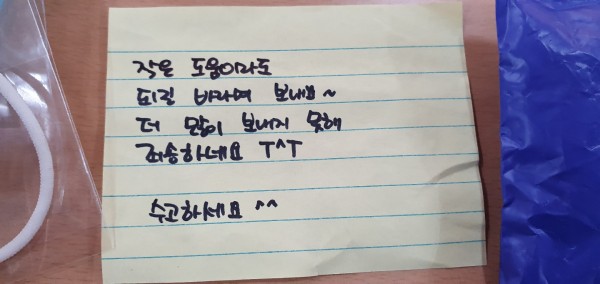 작은 도움이라도
되길 바라며 보내요~
더 많이 보내지 못해
죄송하네요 T^T
수고하세요 ^^